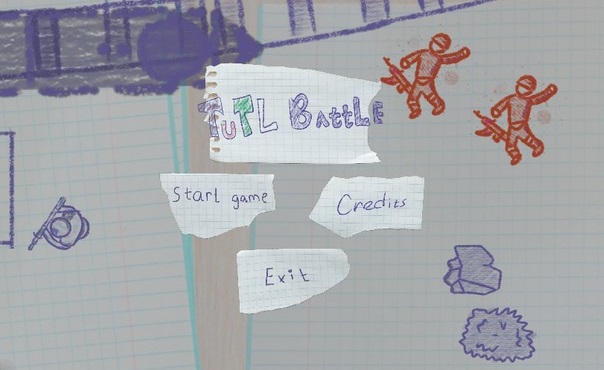 TuTL BattLE
Start game
Credits
Exit